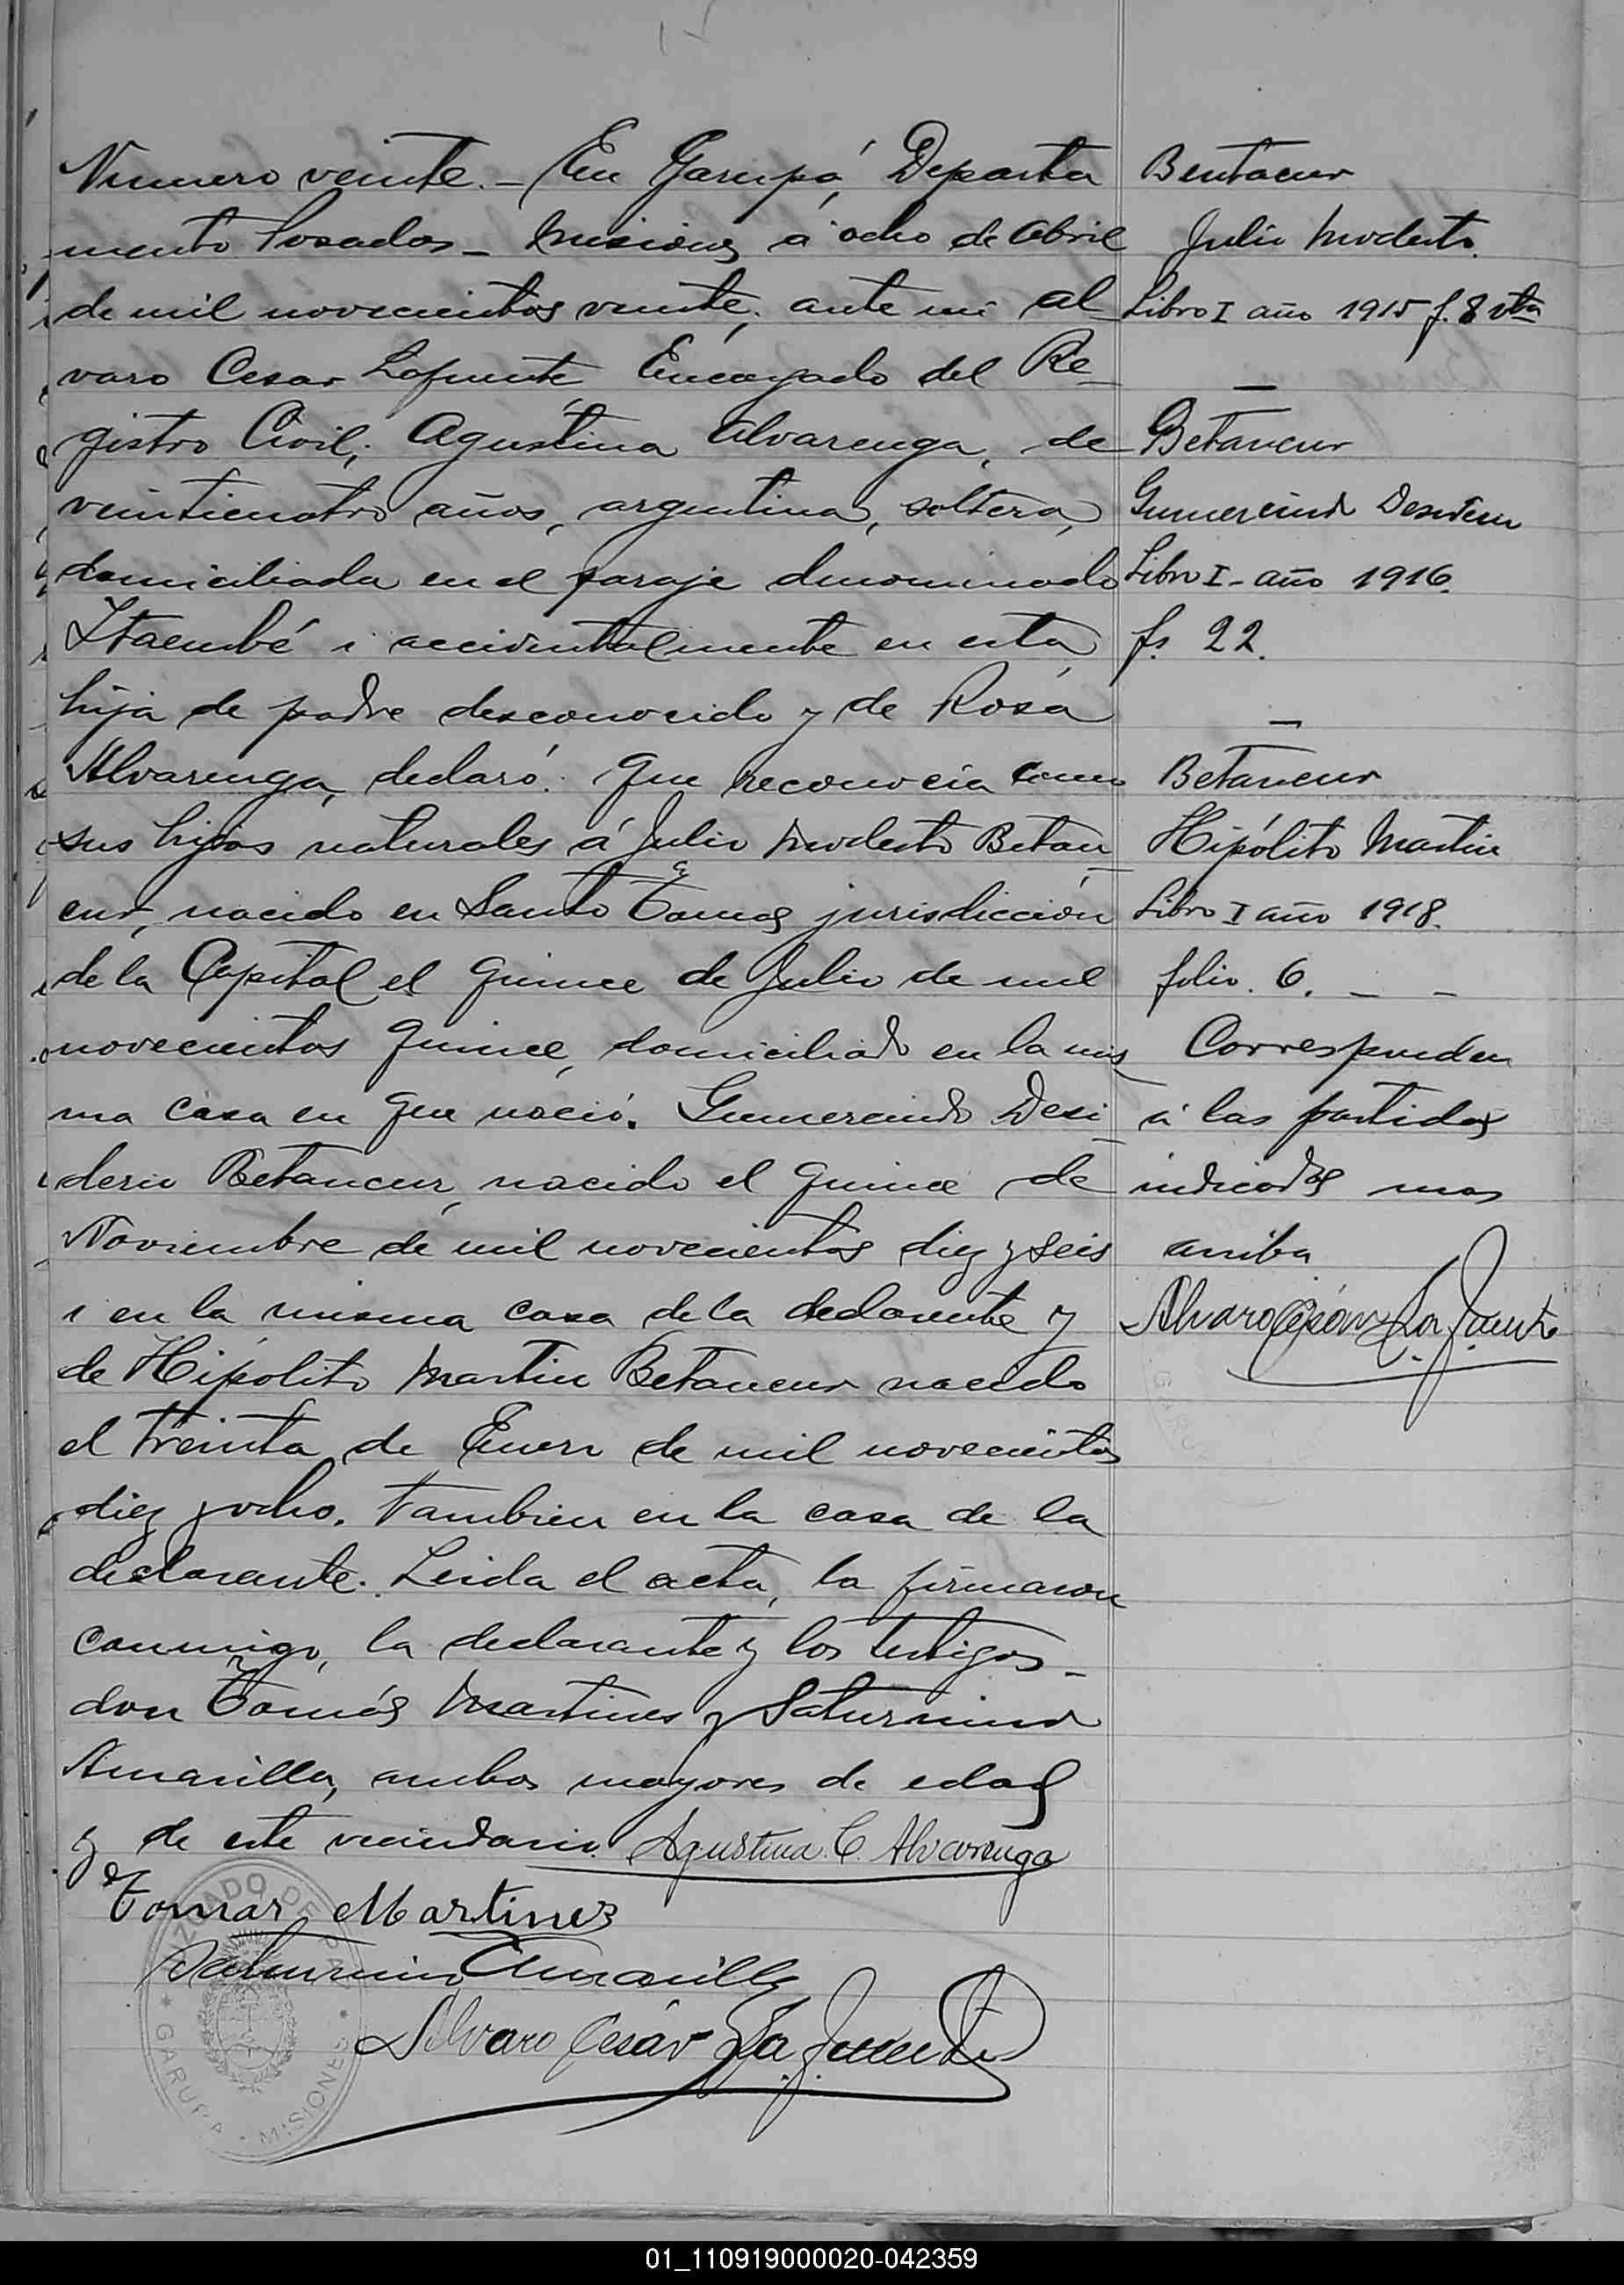 Numero veinte. - En Garupá, Departa
mento Posadas - Misiones á ocho de Abril
de mil novecientos veinte, ante mi Al
varo Cesar Lafuente Encargado del Re-
gistro Civil, Agustina Alvarenga, de
veinticuatro años, argentina, soltera,
domiciliada en el paraje denominado
Itaembé i accidentalmente en esta,
hija de padre desconocido y de Rosa
Alvarenga, declaró: Que reconocía como
sus hijos naturales á Julio Modesto Betan-
cur, nacido en Santo Tomas jurisdicción
de la Capital el quince de Julio de mil
novecientos quince, domiciliado en la mis
ma casa en que nació. Gumercindo Desi-
derio Betancur, nacido el quince de
Noviembre de mil novecientos diez y seis
i en la misma casa de la declarente y
de Hipólito Martin Betancur nacido
el treinta de Enero de mil novecientos
diez y ocho. Tambien en la casa de la
declarante. Leida el acta, la firmaron
conmigo, la declarante y los testigos -
don Tomás Martines y Saturnino
Amarilla, ambos mayores de edad
y de este vecindario. Agustina C. Alvarenga
Tomas Martinez
Saturnino Amarilla
Alvaro Cesár La Fuente
JUZGADO DE PAZ
* GARUPA - MISIONES *
Bentacur
Julio Modesto.
Libro I año 1915 f. 8 vta
—
Betancur
Gumercindo Desiderio
Libro I - año 1916.
fs. 22.
—
Betancur
Hipólito Martin
Libro I año 1918.
folio. 6. — —
Corresponden
á las partidas
indicadas mas
arriba
Alvaro Cesár La Fuente
01_110919000020-042359